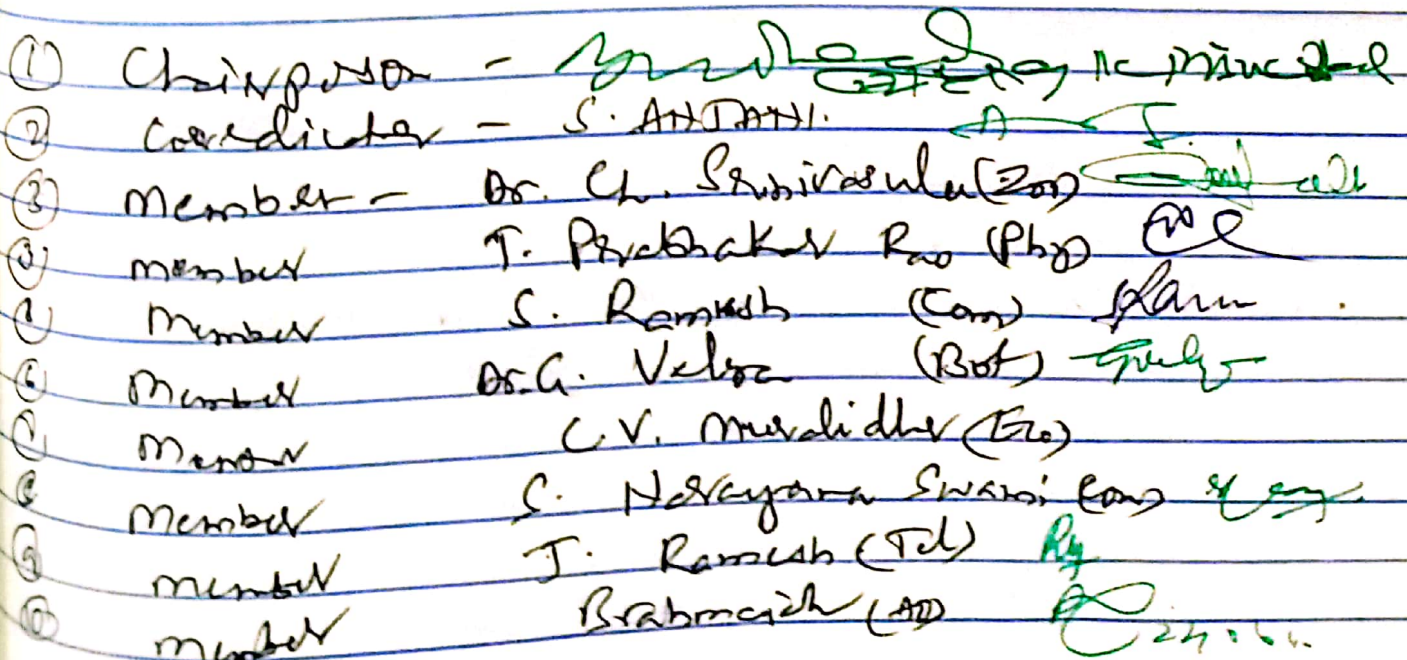 ① Chairperson - Ic principal
② Coordinator - S. ANJANI.
③ Member - Dr. Ch. Srinivasulu (Zoo)
member T. Prabhakar Rao (Phy)
Member S. Ramesh (Com) Ram
⑥ Member Dr. G. Velza (Bot)
Member C.V. Muralidhar (Eco)
Member S. Narayana Swami (Com)
⑨ member J. Ramesh (Tel)
⑩ member Brahmaiah